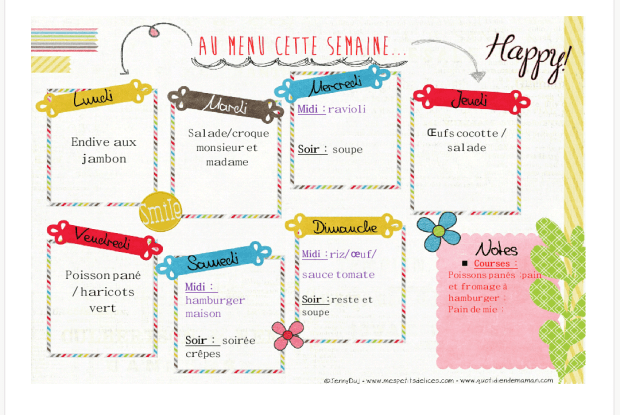 AU MENU CETTE SEMAINE...
Happy!
Lundi
Endive aux
jambon
Mardi
Salade/croque
monsieur et
madame
Mercredi
Midi : ravioli
Soir : soupe
Jeudi
Œufs cocotte /
salade
Smile
Vendredi
Poisson pané
/ haricots
vert
Samedi
Midi :
hamburger
maison
Soir : soirée
crêpes
Dimanche
Midi : riz/œuf/
sauce tomate
Soir : reste et
soupe
Notes
■ Courses :
Poissons panés : pain
et fromage à
hamburger :
Pain de mie :
©JennyDuj - www.mespetitsdelices.com - www.quotidiendemaman.com